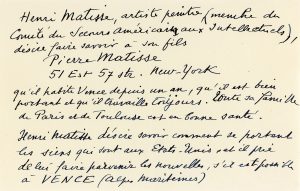 Henri Matisse, artiste peintre (membre du
Comité du Secours Américain aux Intellectuels),
désire faire savoir à son fils
Pierre Matisse
51 Est 57 str. New-York
qu'il habite Vence depuis un an, qu'il est bien
portant et qu'il travaille toujours. toute sa famille
de Paris et de Toulouse est en bonne santé.
Henri Matisse désire savoir comment se portent
les siens qui sont aux Etats-Unis, et il prie
de lui faire parvenir les nouvelles, s'il est possible
à VENCE (alpes maritimes)